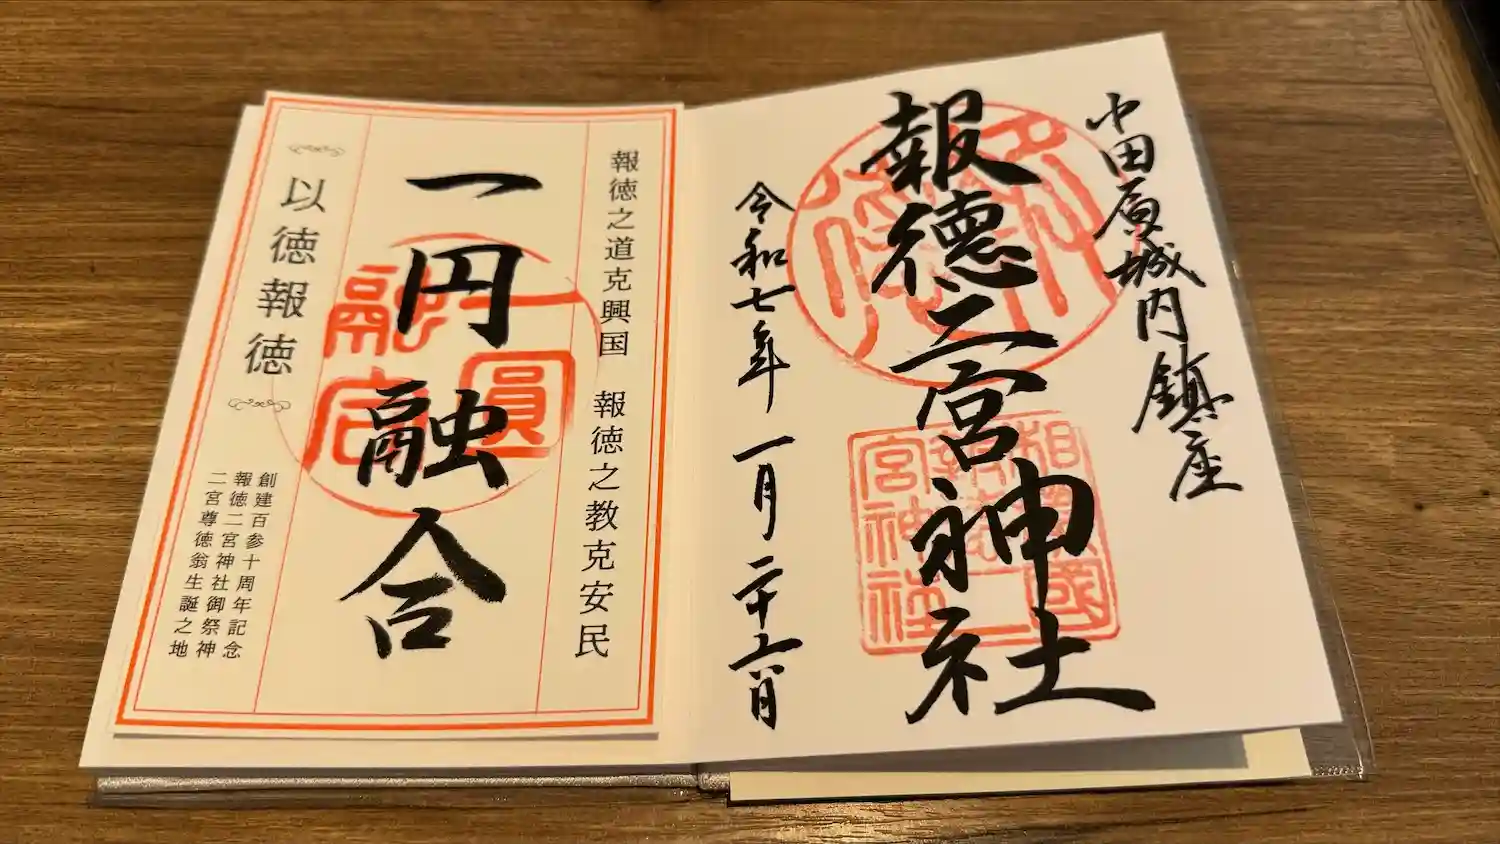 小田原城内鎮座
報徳二宮神社
令和七年一月二十六日
報徳之道克興国　報徳之教克安民
一円融合
以徳報徳
創建百参十周年記念
報徳二宮神社御祭神
二宮尊徳翁生誕之地
一圓
融合
相模國
報徳二
宮神社